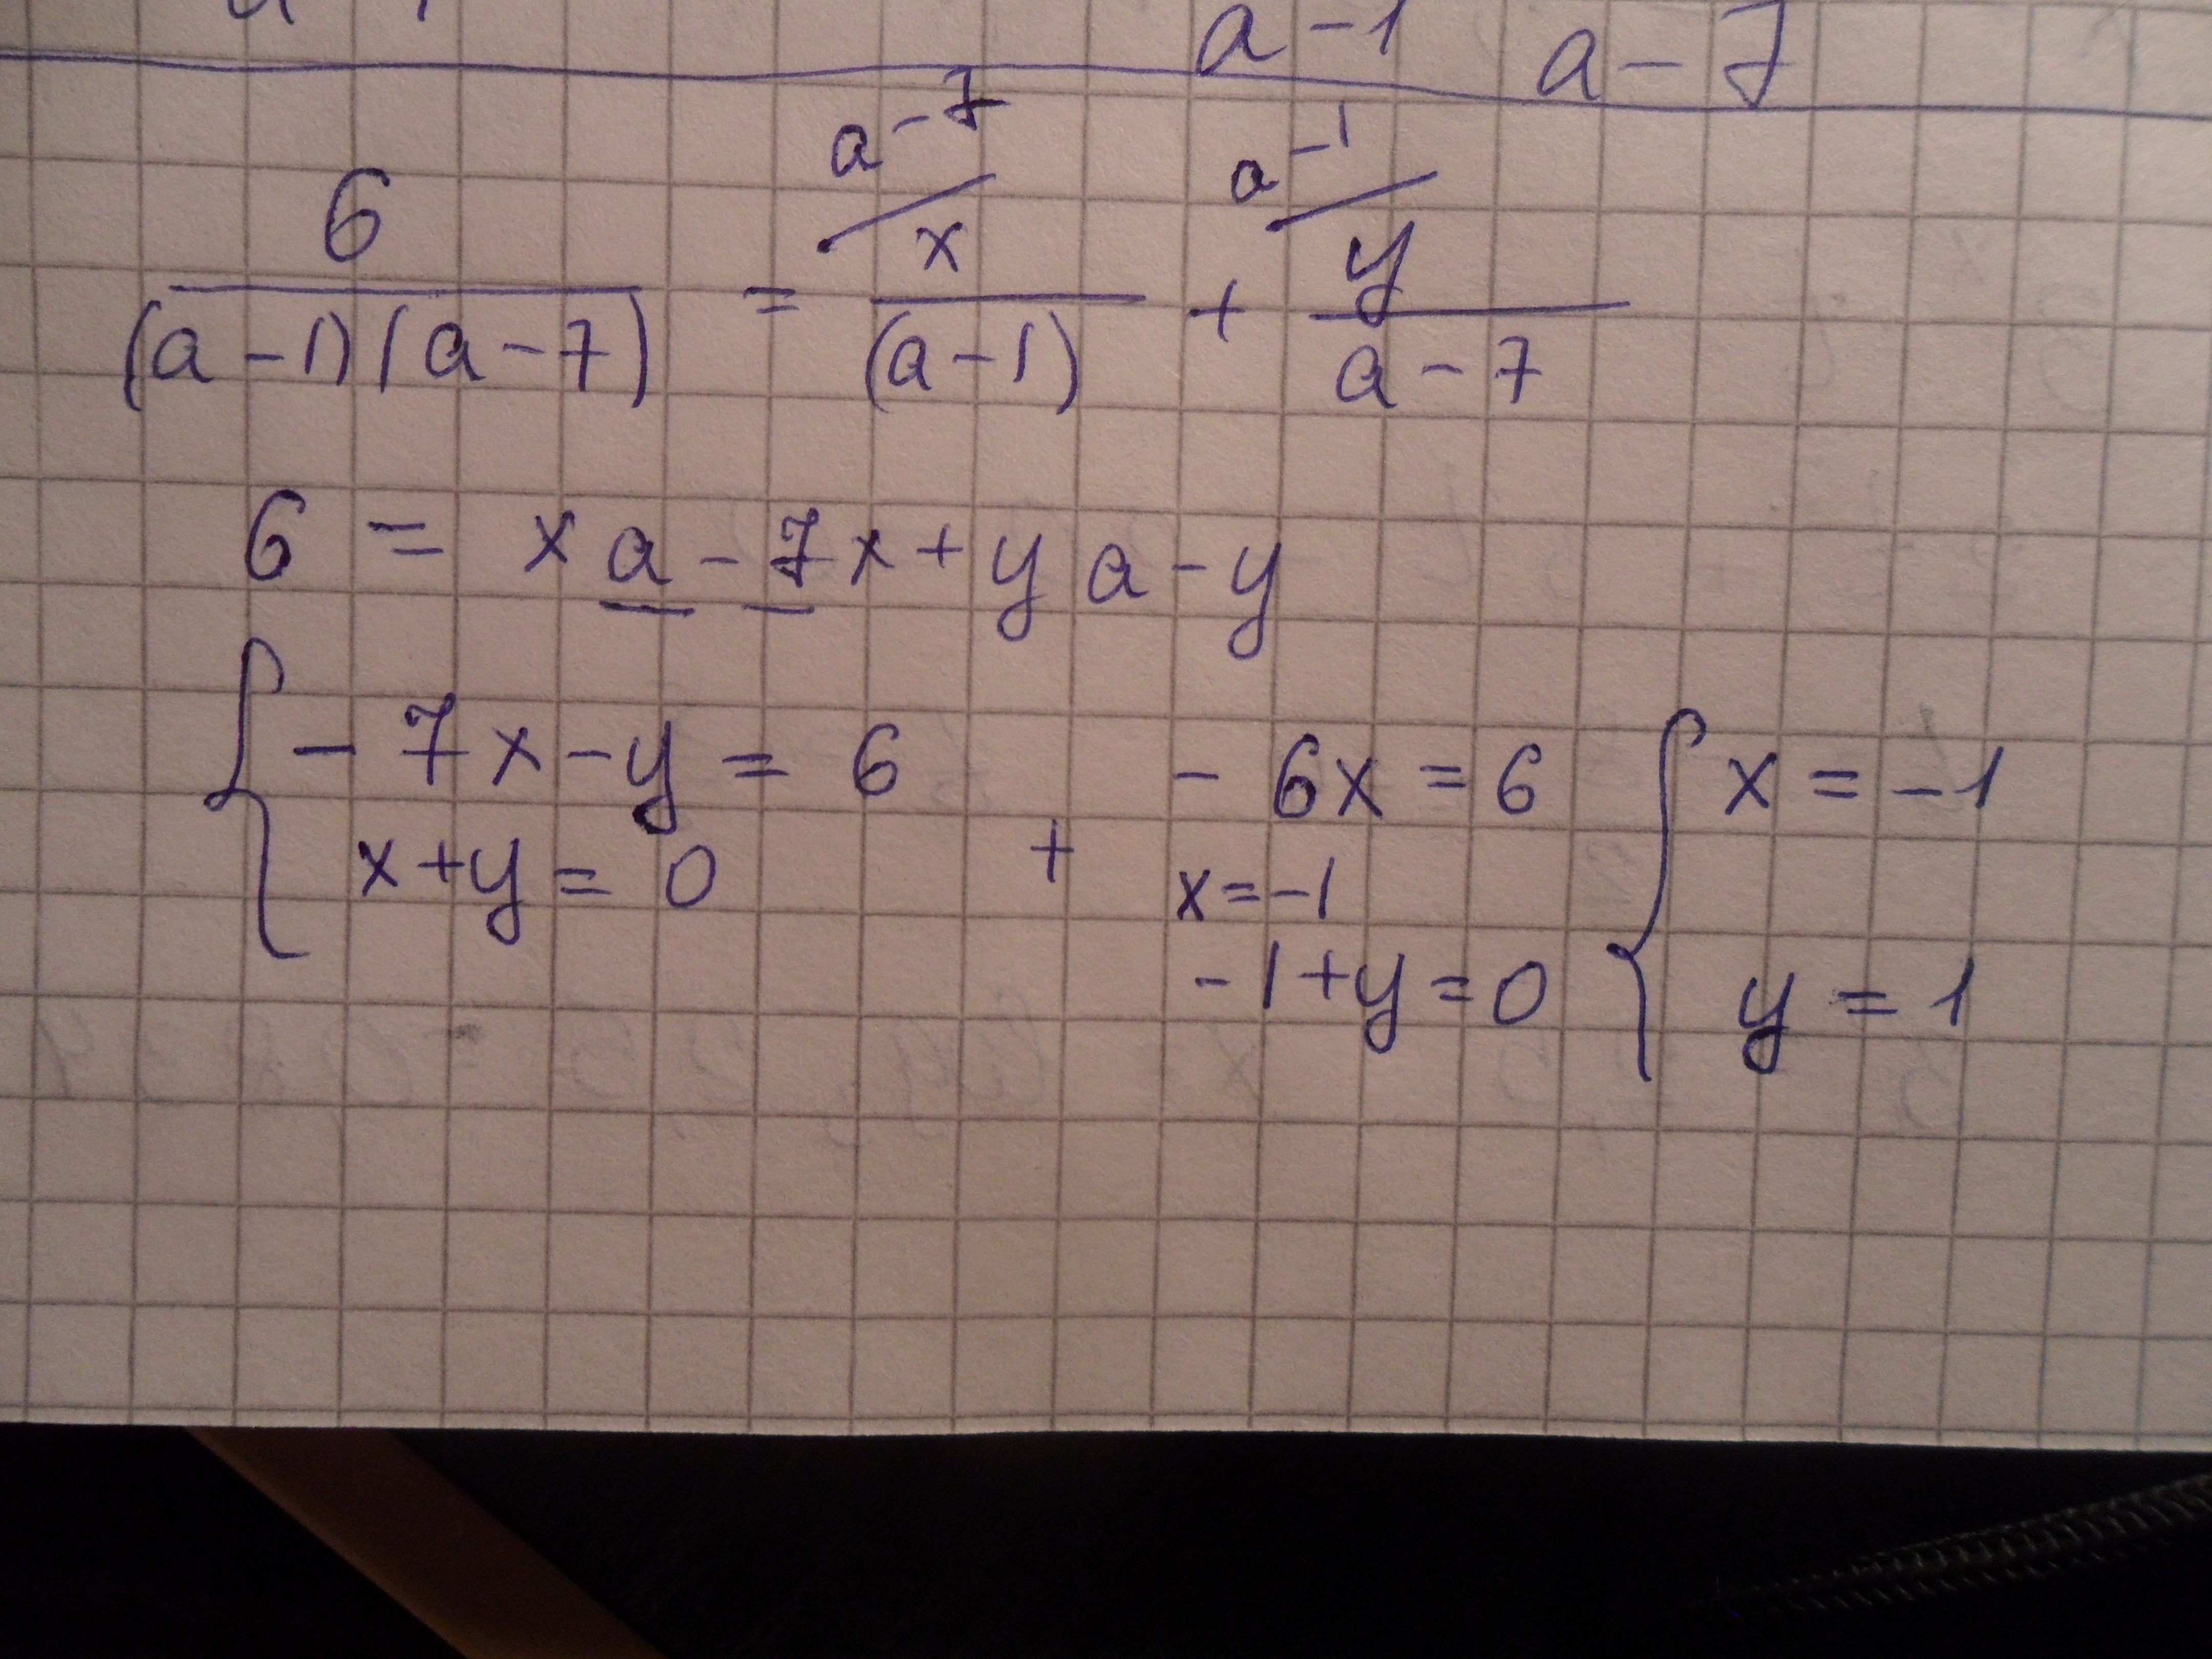 a - 1   a - 7
a - 7   a - 1
6/((a - 1)(a - 7)) = x/(a - 1) + y/(a - 7)
6 = xa - 7x + ya - y
{ - 7x - y = 6   - 6x = 6   { x = -1
x + y = 0   +   x = -1
-1 + y = 0   y = 1